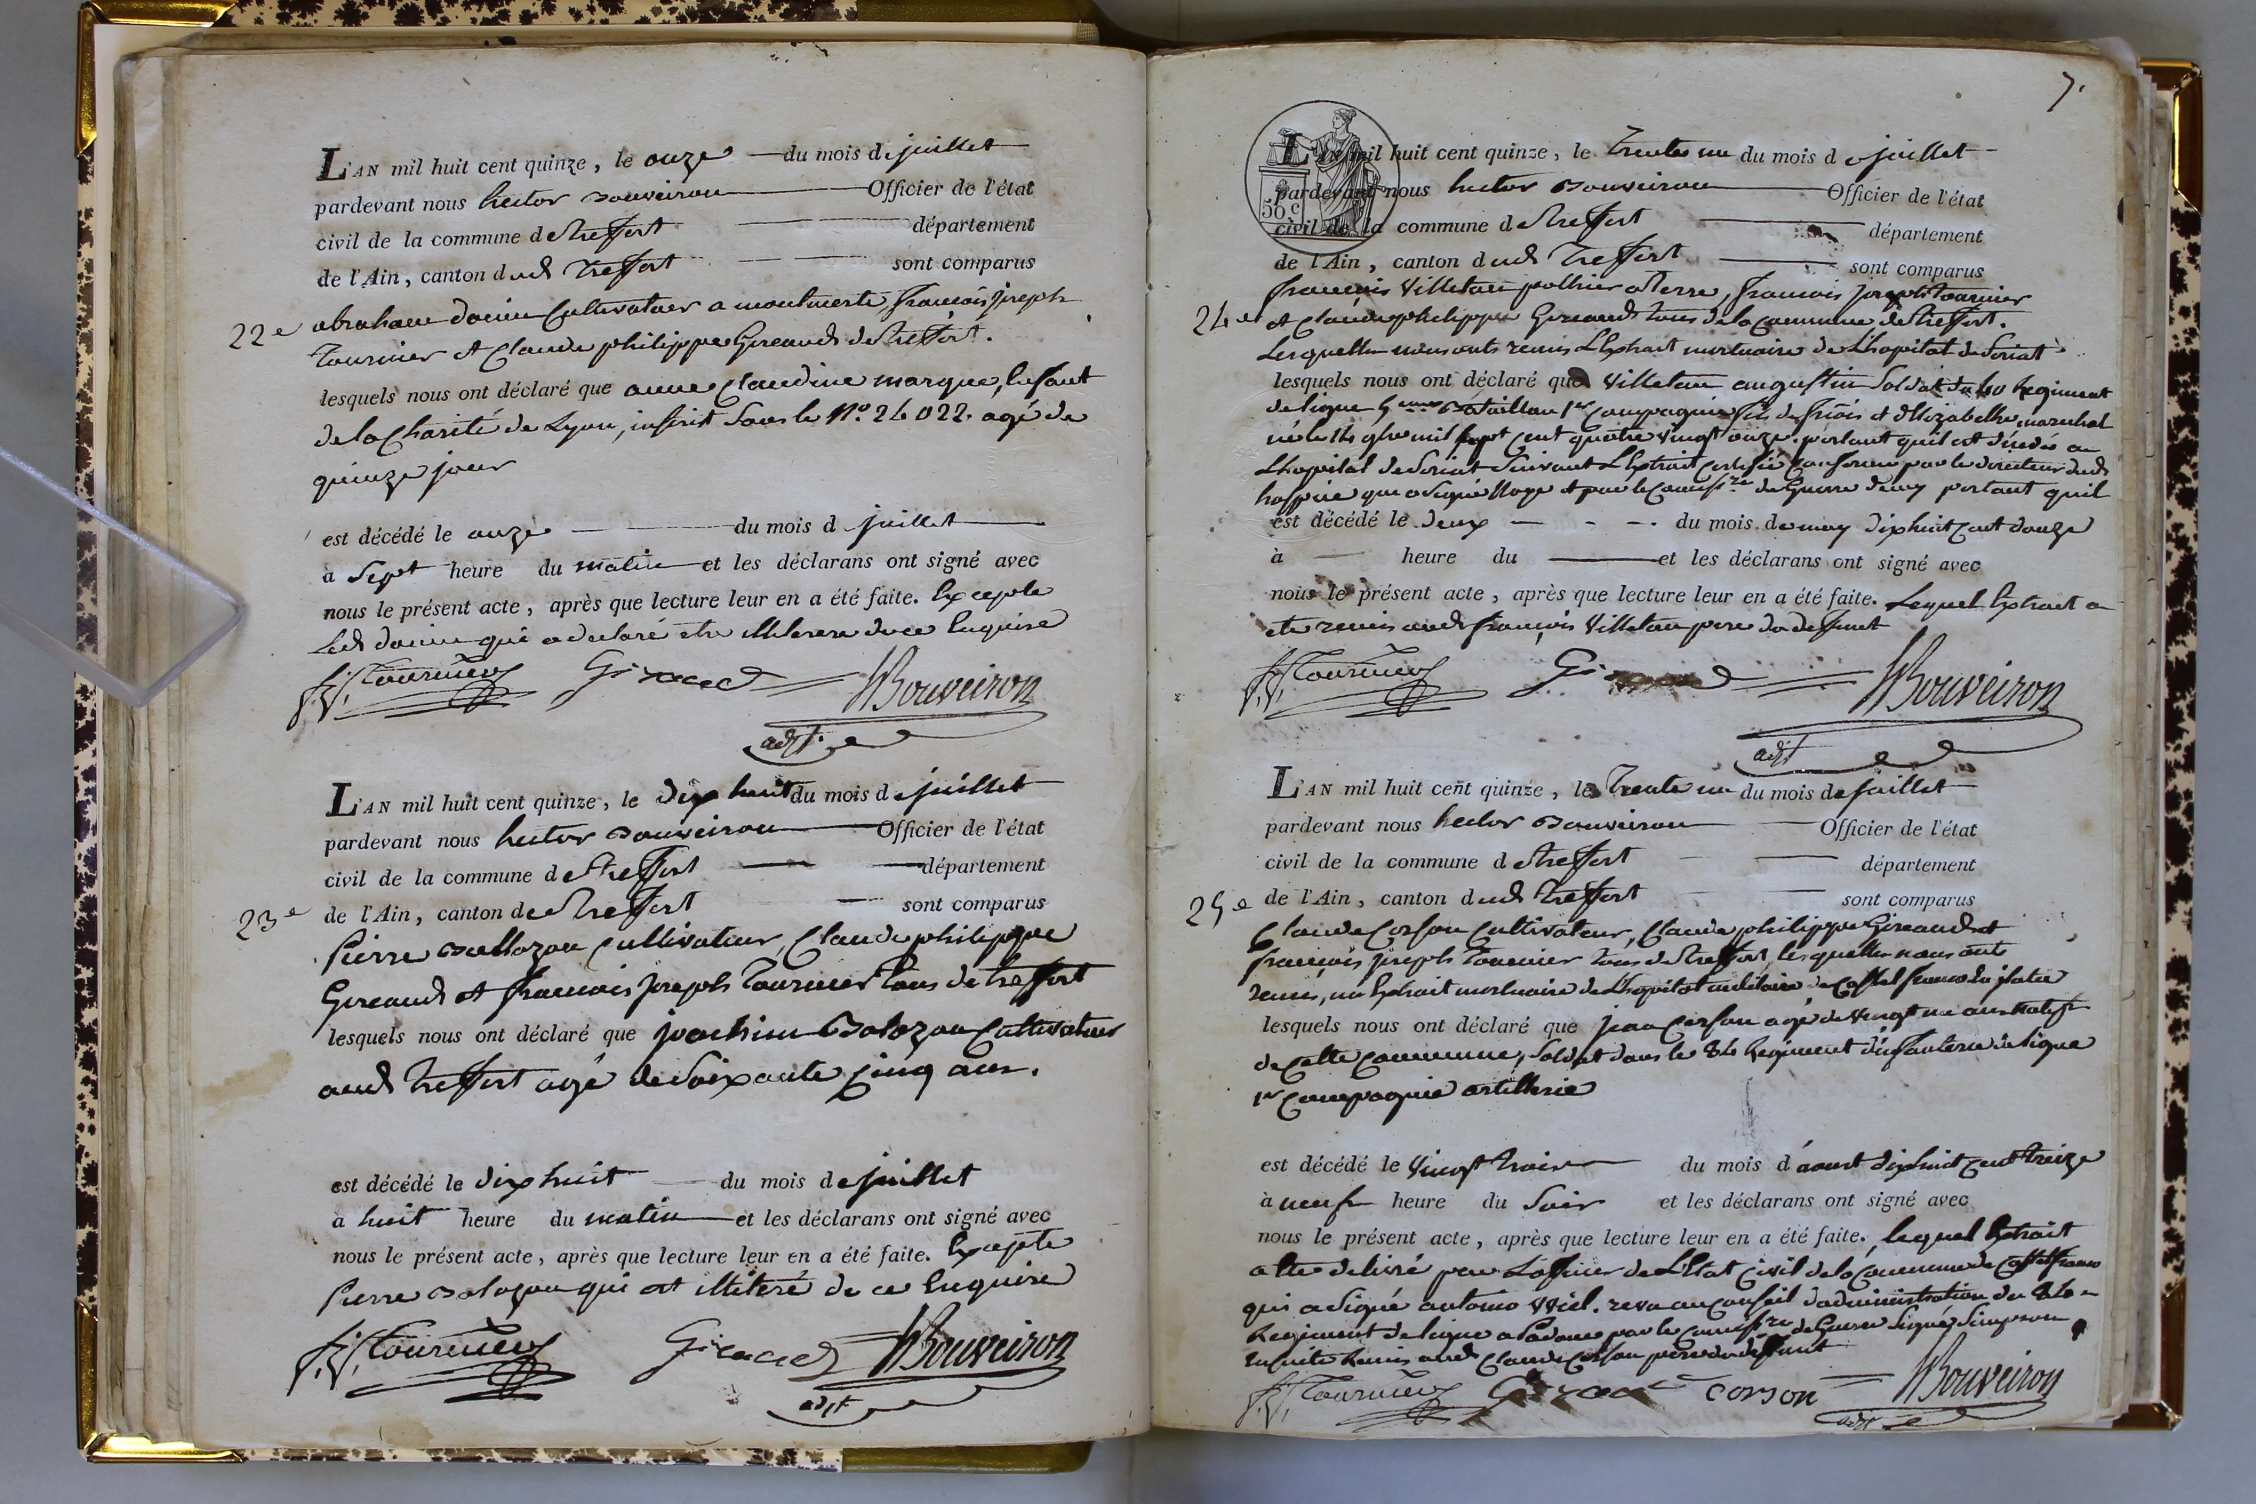 L'AN mil huit cent quinze, le onze du mois de juillet
pardevant nous hector Bouveiron Officier de l'état
civil de la commune de treffort département
de l'Ain, canton dud treffort sont comparus
22e abraham cultivateur a montmerle, françois joseph
tournier et Claude philippe Gireaud de treffort.
lesquels nous ont déclaré que anne Claudine marque, Enfant
de la Charité de Lyon, inscrit sous le N° 24022. agé de
quinze jour
est décédé le onze du mois de juillet
à sept heure du matin et les déclarans ont signé avec
nous le présent acte, après que lecture leur en a été faite. Excepte
Led qui a declaré etre de ce Enquise
f. j. tournier Giraud HBouveiron
adjt.
L'AN mil huit cent quinze, le dix huit du mois de juillet
pardevant nous hector Bouveiron Officier de l'état
civil de la commune de treffort département
23e de l'Ain, canton de treffort sont comparus
Pierre cultivateur, Claude philippe
Gireaud et françois joseph tournier tous de treffort
lesquels nous ont déclaré que joachim Balozon Cultivateur
aud treffort agé de soixante cinq ans.
est décédé le dix huit du mois de juillet
à huit heure du matin et les déclarans ont signé avec
nous le présent acte, après que lecture leur en a été faite. Excepte
Pierre Balozon qui est illiteré de ce Enquise
f. j. tournier Giraud HBouveiron
adjt
7.
L'AN mil huit cent quinze, le trente un du mois de juillet
pardevant nous hector Bouveiron Officier de l'état
50 c
civil de la commune de treffort département
de l'Ain, canton dud treffort sont comparus
françois Villetan pothier a terre, françois joseph tournier
24e et Claude philippe Gireaud tous de la Commune de treffort.
Lesquelle nous onts remis L'Extrait mortuaire de L'hopital de Soriat
lesquels nous ont déclaré que Villetan augustin Soldat du Regiment
de ligne Bataillon 1er Compagnie fils de et d'Elizabethe marechal
né le 14 mil sept cent quatre vingt onze. portant qu'il est décédé a
L'hopital de Soriat Suivant L'Extrait certifié conforme par le directeur dud
hospice que a signé et par le de Guerre portant qu'il
est décédé le deux du mois de may dix huit cent douze
à heure du et les déclarans ont signé avec
nous le présent acte, après que lecture leur en a été faite. Lequel Extrait a
ete remis aud françois Villetan pere du deffunt
f. j. tournier Giraud HBouveiron
adjt
L'AN mil huit cent quinze, le trente un du mois de juillet
pardevant nous hector Bouveiron Officier de l'état
civil de la commune de treffort département
25e de l'Ain, canton dud treffort sont comparus
Claude Corson cultivateur, Claude philippe Gireaud et
françois joseph tournier tous de treffort, lesquelle nous onts
remis, un Extrait mortuaire de L'hopital militaire de Castel franco
lesquels nous ont déclaré que jean Corson agé de vingt un ans natif
de Cette Commune, Soldat dans le 84 Regiment d'infanterie de ligne
1er Compagnie artillerie
est décédé le vingt trois du mois d'aoust dix huit cent treize
à neuf heure du soir et les déclarans ont signé avec
nous le présent acte, après que lecture leur en a été faite. Lequel Extrait
a ete delivré par L'officier de L'Etat Civil de la Commune de Castelfranco
qui a signé antonio . revu au Conseil d'administration du 84e
Regiment de ligne a Padoue par le de Guerre signé Simpson
Ensuite Remis aud Claude Corson pere du deffunt
f. j. tournier Giraud corson HBouveiron
adjt